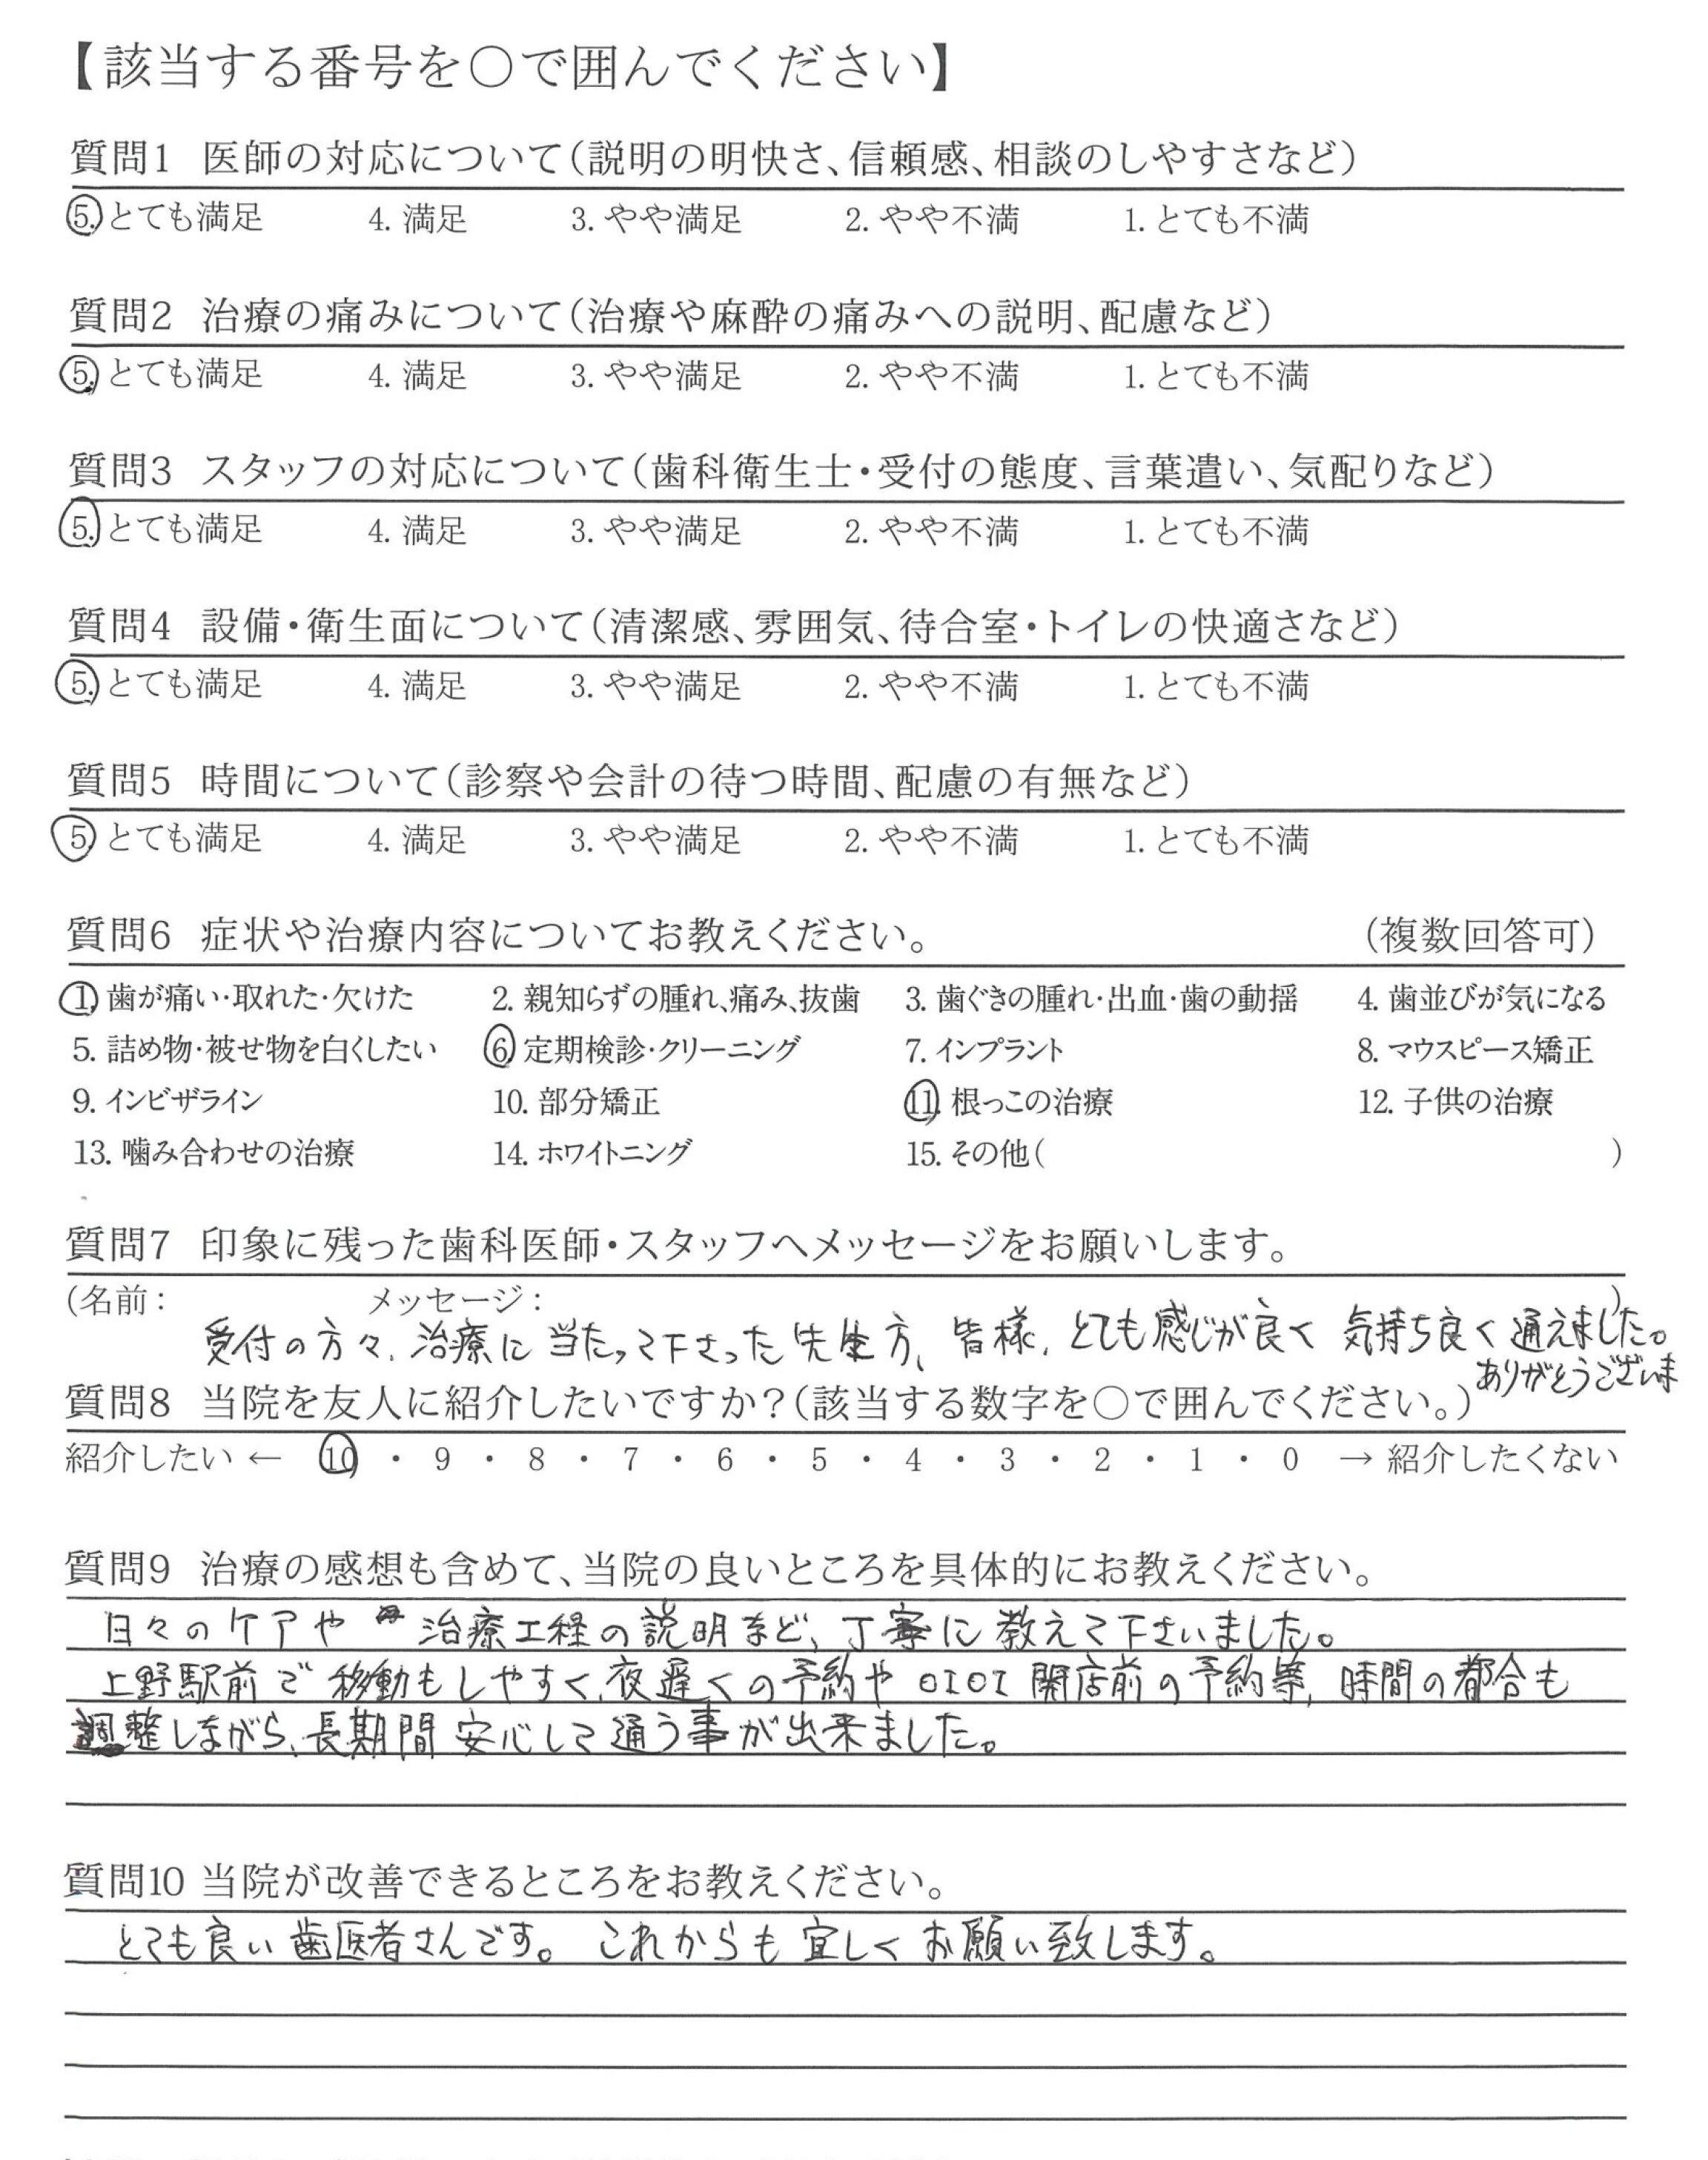 【該当する番号を○で囲んでください】
質問1 医師の対応について(説明の明快さ、信頼感、相談のしやすさなど)
5. とても満足 4. 満足 3. やや満足 2. やや不満 1. とても不満
質問2 治療の痛みについて(治療や麻酔の痛みへの説明、配慮など)
5. とても満足 4. 満足 3. やや満足 2. やや不満 1. とても不満
質問3 スタッフの対応について(歯科衛生士・受付の態度、言葉遣い、気配りなど)
5. とても満足 4. 満足 3. やや満足 2. やや不満 1. とても不満
質問4 設備・衛生面について(清潔感、雰囲気、待合室・トイレの快適さなど)
5. とても満足 4. 満足 3. やや満足 2. やや不満 1. とても不満
質問5 時間について(診察や会計の待つ時間、配慮の有無など)
5. とても満足 4. 満足 3. やや満足 2. やや不満 1. とても不満
質問6 症状や治療内容についてお教えください。 (複数回答可)
1. 歯が痛い・取れた・欠けた 2. 親知らずの腫れ、痛み、抜歯 3. 歯ぐきの腫れ・出血・歯の動揺 4. 歯並びが気になる
5. 詰め物・被せ物を白くしたい 6. 定期検診・クリーニング 7. インプラント 8. マウスピース矯正
9. インビザライン 10. 部分矯正 11. 根っこの治療 12. 子供の治療
13. 噛み合わせの治療 14. ホワイトニング 15. その他( )
質問7 印象に残った歯科医師・スタッフへメッセージをお願いします。
(名前: メッセージ: )
受付の方々、治療に当たって下さった先生方、皆様、とても感じが良く 気持ち良く通えました。
ありがとうございま
質問8 当院を友人に紹介したいですか?(該当する数字を○で囲んでください。)
紹介したい ← 10 ・ 9 ・ 8 ・ 7 ・ 6 ・ 5 ・ 4 ・ 3 ・ 2 ・ 1 ・ 0 → 紹介したくない
質問9 治療の感想も含めて、当院の良いところを具体的にお教えください。
日々のケアや 治療工程の説明など、丁寧に教えて下さいました。
上野駅前で移動もしやすく、夜遅くの予約やOIOI開店前の予約等、時間の都合も
調整しながら、長期間安心して通う事が出来ました。
質問10 当院が改善できるところをお教えください。
とても良い歯医者さんです。 これからも宜しくお願い致します。